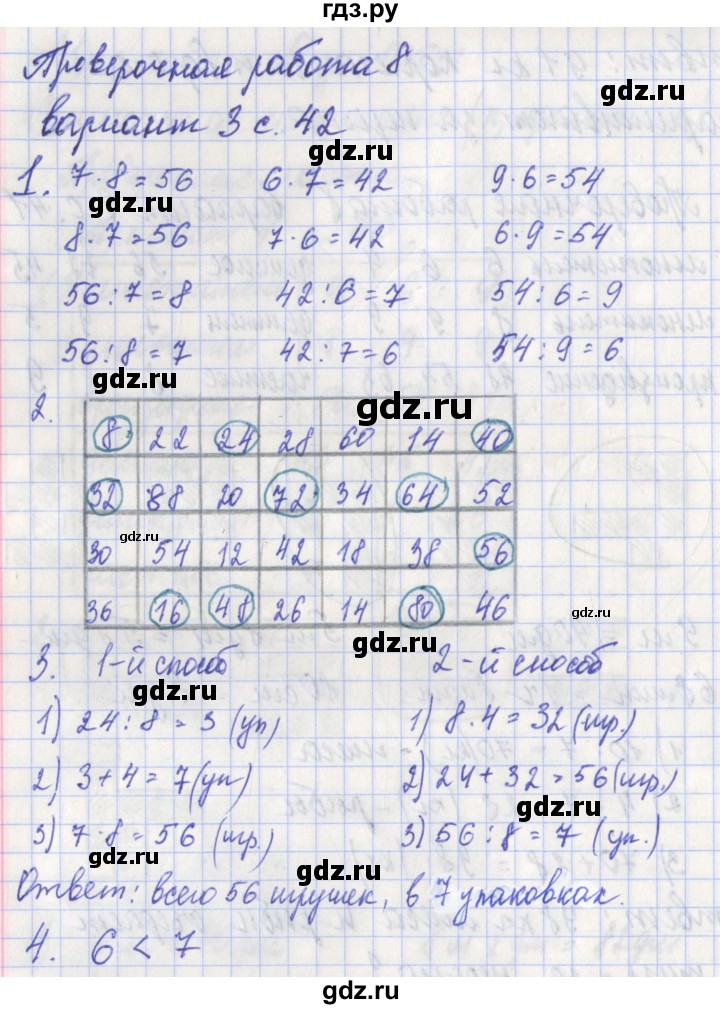 гдз.ру
Проверочная работа 8
gdz.ru
вариант 3 с. 42
gdz.ru
1. 7·8=56 6·7=42 9·6=54
gdz.ru
8·7=56 7·6=42 6·9=54
gdz.ru
56:7=8 42:6=7 54:6=9
gdz.ru
56:8=7 42:7=6 54:9=6
gdz.ru
2.
8 22 24 28 60 14 40
32 88 20 72 34 64 52
gdz.ru
30 54 12 42 18 38 56
36 16 48 26 14 80 46
gdz.ru
gdz.ru
3. 1-й способ 2-й способ
gdz.ru
1) 24:8=3 (уп) 1) 8·4=32 (игр.)
2) 3+4=7 (уп) 2) 24+32=56 (игр.)
gdz.ru
3) 7·8=56 (игр.) 3) 56:8=7 (уп.)
gdz.ru
gdz.ru
Ответ: всего 56 игрушек, в 7 упаковках.
4. 6 < 7
gdz.ru
gdz.ru
gdz.ru